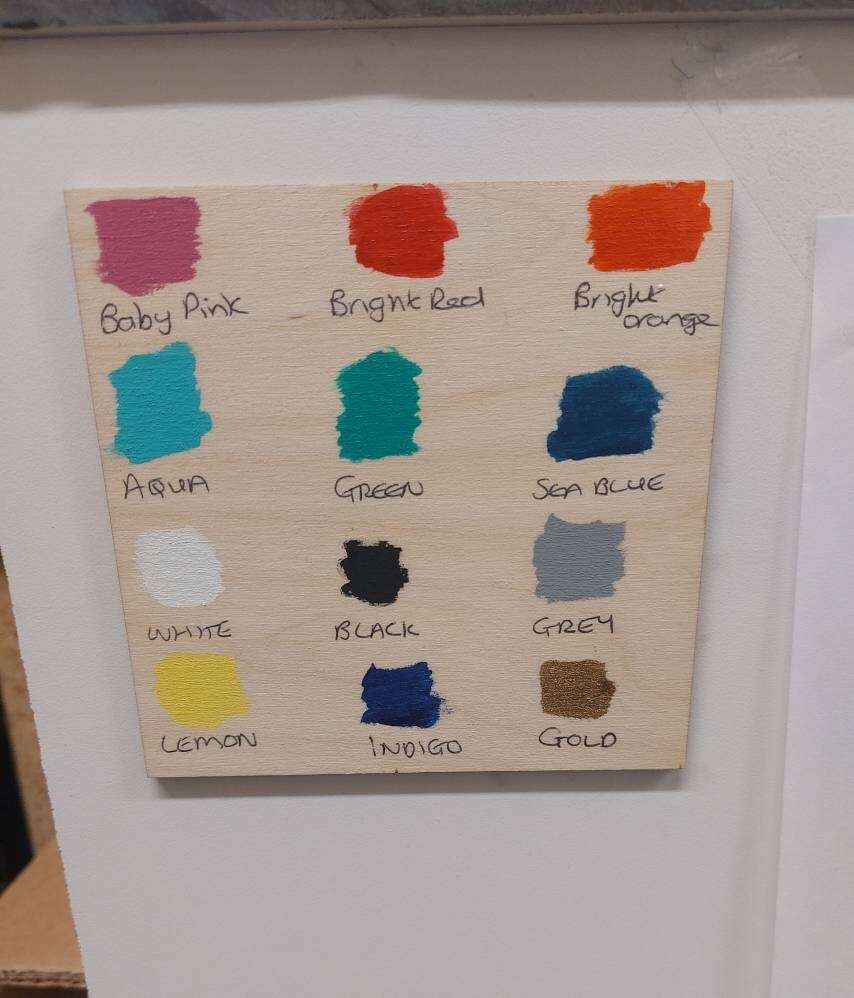 Baby Pink
Bright Red
Bright
orange
AQUA
GREEN
SEA BLUE
WHITE
BLACK
GREY
LEMON
INDIGO
GOLD